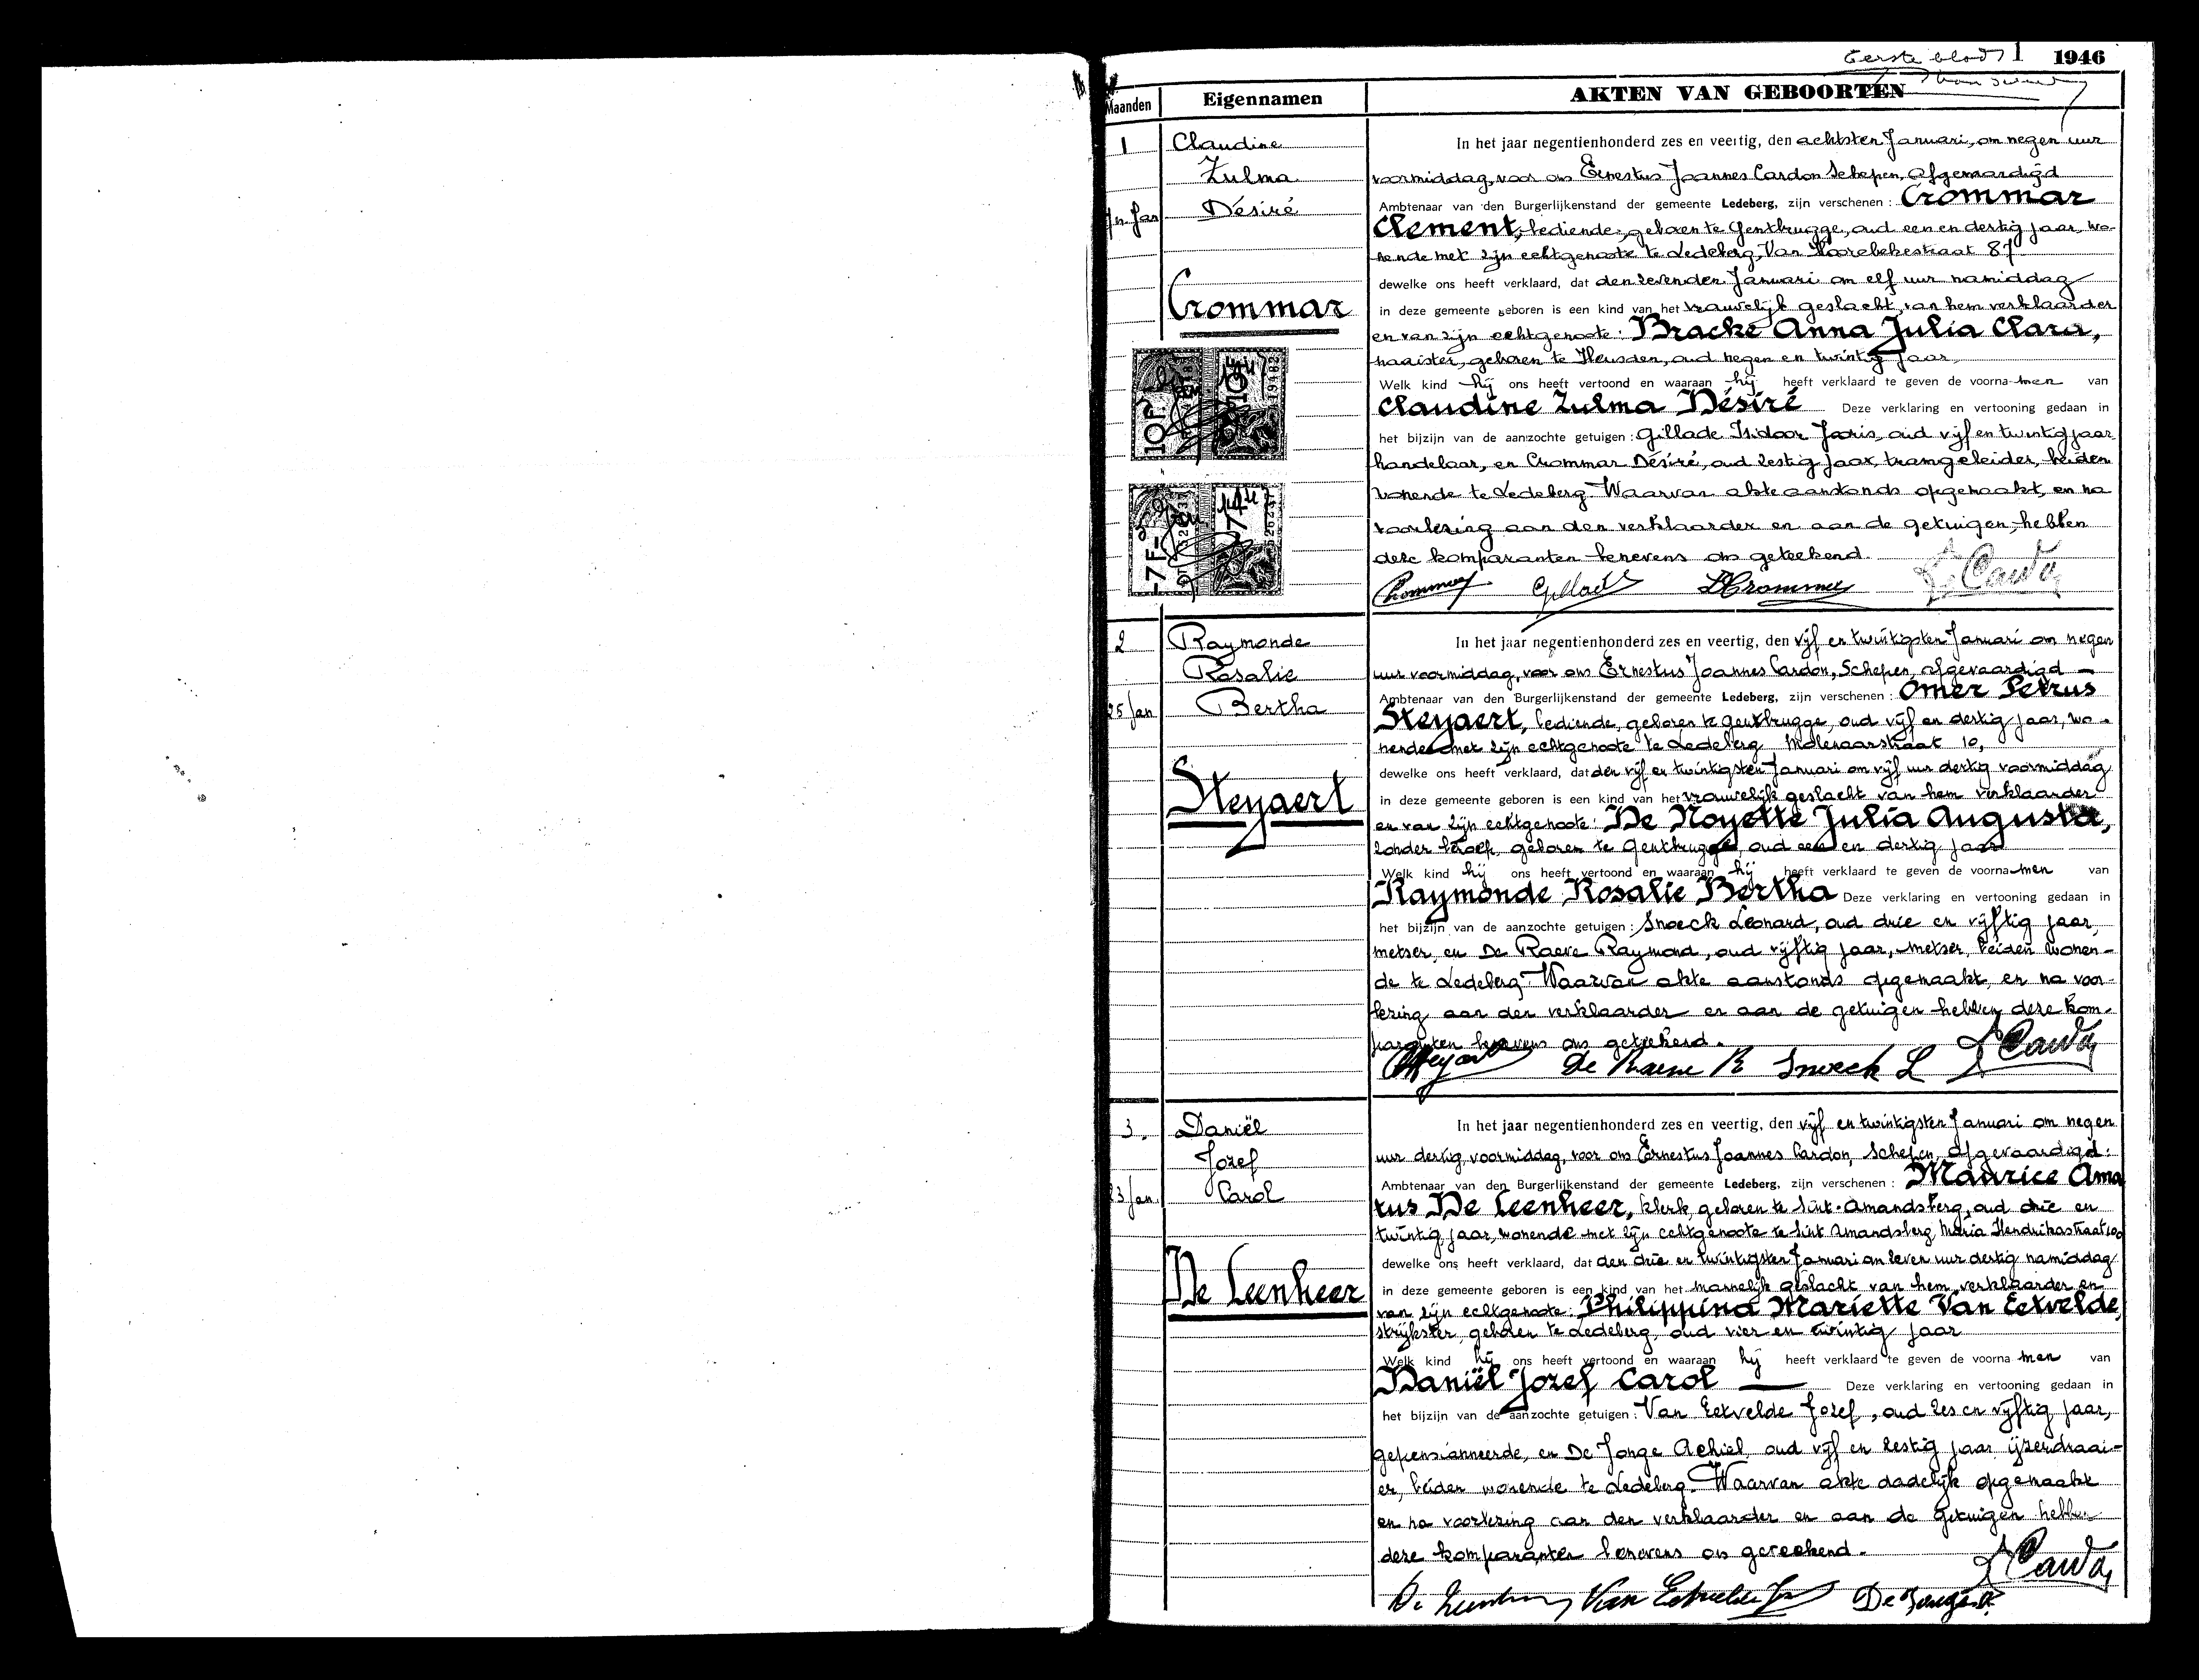 Eerste blad 1 1946
Maanden Eigennamen AKTEN VAN GEBOORTEN
1
Claudine
Zulma
Désiré
7n Jan
Crommar
10F
10F
19182
7F
7F
In het jaar negentienhonderd zes en veertig, den achtsten Januari, om negen uur
voormiddag, voor ons Ernestus Joannes Cardon Schepen, afgevaardigd
Ambtenaar van den Burgerlijkenstand der gemeente Ledeberg, zijn verschenen : Crommar
Clement, bediende, geboren te Gentbrugge, oud een en dertig jaar, wo-
nende met zijn echtgenoote te Ledeberg, Van Hoorebekestraat 87
dewelke ons heeft verklaard, dat den zevenden Januari om elf uur namiddag
in deze gemeente geboren is een kind van het vrouwelijk geslacht, van hem verklaarder
en van zijn echtgenoote : Bracke Anna Julia Clara,
naaister, geboren te Heusden, oud negen en twintig jaar
Welk kind hij ons heeft vertoond en waaraan hij heeft verklaard te geven de voorna-men van
Claudine Zulma Désiré Deze verklaring en vertooning gedaan in
het bijzijn van de aanzochte getuigen : Gillade Isidoor Joris, oud vijf en twintig jaar
handelaar, en Crommar Désiré, oud zestig jaar, tramgeleider, beiden
wonende te Ledeberg. Waarvan akte aanstonds opgemaakt, en na
voorlezing aan den verklaarder en aan de getuigen, hebben
deze komparanten benevens ons geteekend.
2
Raymonde
Rosalie
Bertha
25 Jan
Steyaert
In het jaar negentienhonderd zes en veertig, den vijf en twintigsten Januari om negen
uur voormiddag, voor ons Ernestus Joannes Cardon, Schepen, afgevaardigd
Ambtenaar van den Burgerlijkenstand der gemeente Ledeberg, zijn verschenen : Omer Petrus
Steyaert, bediende, geboren te Gentbrugge, oud vijf en dertig jaar, wo-
nende met zijn echtgenoote te Ledeberg Molenaarstraat 10,
dewelke ons heeft verklaard, dat den vijf en twintigsten Januari om vijf uur dertig voormiddag
in deze gemeente geboren is een kind van het vrouwelijk geslacht van hem verklaarder
en van zijn echtgenoote : De Noyette Julia Augusta,
zonder beroep, geboren te Gentbrugge, oud een en dertig jaar
Welk kind hij ons heeft vertoond en waaraan hij heeft verklaard te geven de voorna-men van
Raymonde Rosalie Bertha Deze verklaring en vertooning gedaan in
het bijzijn van de aanzochte getuigen : Snoeck Leonard, oud drie en vijftig jaar,
metser, en De Raeve Raymond, oud vijftig jaar, metser, beiden wonen-
de te Ledeberg. Waarvan akte aanstonds opgemaakt, en na voor-
lezing aan den verklaarder en aan de getuigen hebben deze kom-
paranten benevens ons geteekend.
De Raeve R Snoeck L
3.
Daniël
Jozef
Carol
23 Jan.
De Leenheer
In het jaar negentienhonderd zes en veertig, den vijf en twintigsten Januari om negen
uur dertig voormiddag, voor ons Ernestus Joannes Cardon, Schepen, afgevaardigd.
Ambtenaar van den Burgerlijkenstand der gemeente Ledeberg, zijn verschenen : Maurice Ama
tus De Leenheer, klerk, geboren te Sint-Amandsberg, oud drie en
twintig jaar, wonende met zijn echtgenoote te Sint Amandsberg, Maria Hendrikastraat 100
dewelke ons heeft verklaard, dat den drie en twintigsten Januari om zeven uur dertig namiddag
in deze gemeente geboren is een kind van het mannelijk geslacht van hem verklaarder en
van zijn echtgenoote : Philippina Mariette Van Eetvelde,
strijkster, geboren te Ledeberg, oud vier en twintig jaar
Welk kind hij ons heeft vertoond en waaraan hij heeft verklaard te geven de voorna men van
Daniël Jozef Carol Deze verklaring en vertooning gedaan in
het bijzijn van de aanzochte getuigen : Van Eetvelde Jozef, oud zes en vijftig jaar,
gepensionneerde, en De Jonge Achiel oud vijf en zestig jaar ijzerdraai-
er, beiden wonende te Ledeberg. Waarvan akte dadelijk opgemaakt
en na voorlezing aan den verklaarder en aan de getuigen hebben
deze komparanten benevens ons geteekend.
Van Eetvelde Joz